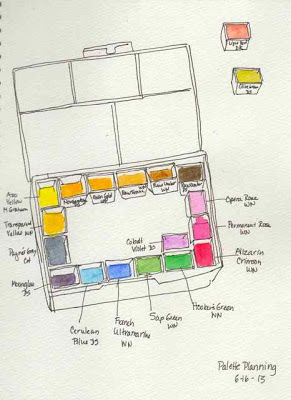 Olive Green
DS
Azo
Yellow
M Graham
Transparent
Yellow WN
Opera Rose
WN
Permanent Rose
WN
Cobalt
Violet DS
Alizarin
Crimson
WN
Moonglow
DS
Cerulean
Blue DS
French
Ultramarine
WN
Sap Green
WN
Hooker's Green
WN
Palette Planning
6-16-13